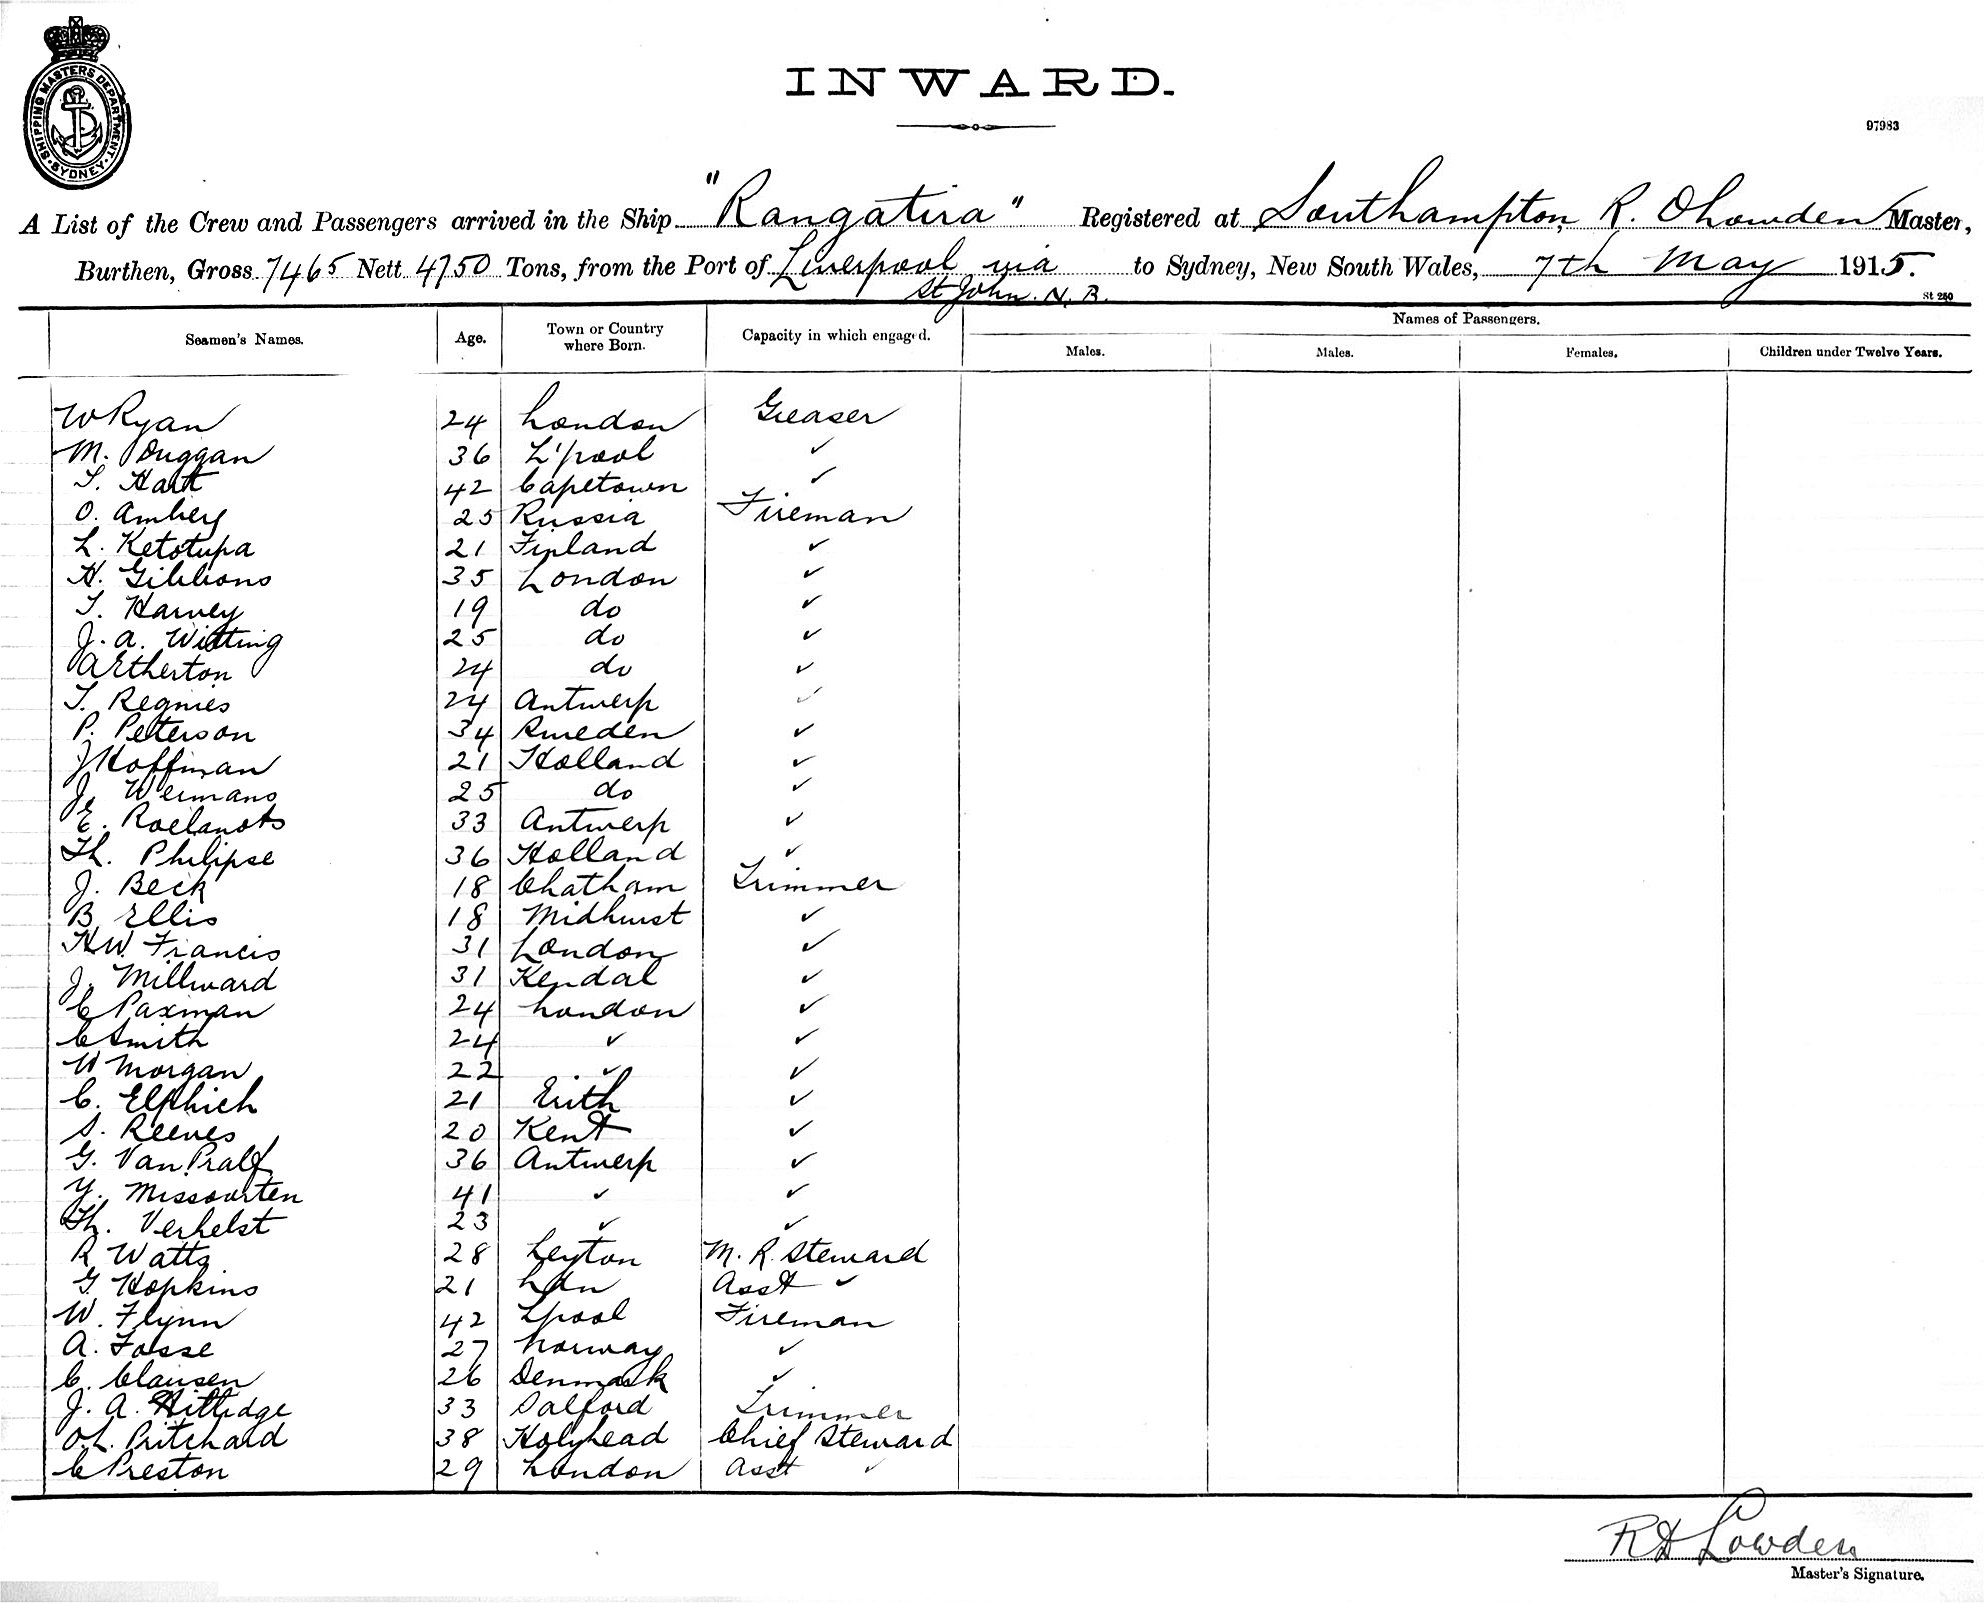 SHIPPING MASTERS DEPARTMENT. SYDNEY
INWARD.
97983
A List of the Crew and Passengers arrived in the Ship "Rangatira" Registered at Southampton, R. Master,
Burthen, Gross 7465 Nett 4750 Tons, from the Port of Liverpool via to Sydney, New South Wales, 7th May 1915.
St John. N. B.
St 250
Seamen's Names. Age. Town or Country where Born. Capacity in which engaged. Names of Passengers.
Males. Males. Females. Children under Twelve Years.
W Ryan 24 London Greaser
M. Duggan 36 L'pool ✓
T. Hart 42 Capetown ✓
O. Amberg 25 Russia Fireman
L. Ketotupa 21 Finland ✓
H. Gibbons 35 London ✓
T. Harvey 19 do ✓
J. A. Witting 25 do ✓
A Etherton 24 do ✓
T. Regnies 24 Antwerp ✓
P. Peterson 34 Sweden ✓
J Hoffman 21 Holland ✓
J. Wermans 25 do ✓
E. Roelandts 33 Antwerp ✓
Th. Philipse 36 Holland ✓
J. Beck 18 Chatham Trimmer
B Ellis 18 Midhurst ✓
H W. Francis 31 London ✓
J. Millward 31 Kendal ✓
C Paxman 24 London ✓
C Smith 24 ✓ ✓
W Morgan 22 ✓ ✓
C. Elphich 21 Erith ✓
S. Reeves 20 Kent ✓
G. Van 36 Antwerp ✓
Y. Missourten 41 ✓ ✓
Th. Verhelst 23 ✓ ✓
R Watts 28 Leyton M. R. Steward
G Hopkins 21 Ldn Asst ✓
W. Flynn 42 Lpool Fireman
A. Fosse 27 Norway ✓
C. Clausen 26 Denmark ✓
J. A. Kittridge 33 Salford Trimmer
O. L. Pritchard 38 Holyhead Chief Steward
C Preston 29 London Asst ✓
R A Lowden
Master's Signature.